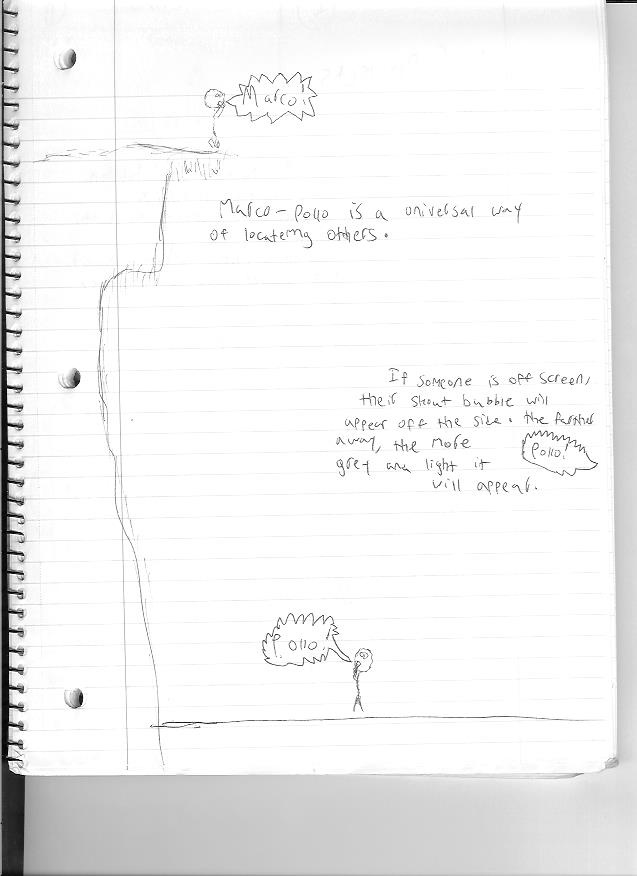 Marco!
Marco-Pollo is a universal way
of locateing others.
If someone is off screen,
their shout bubble will
appear off the side. the farther
away, the more
grey and light it
will appear.
Pollo!
Pollo!